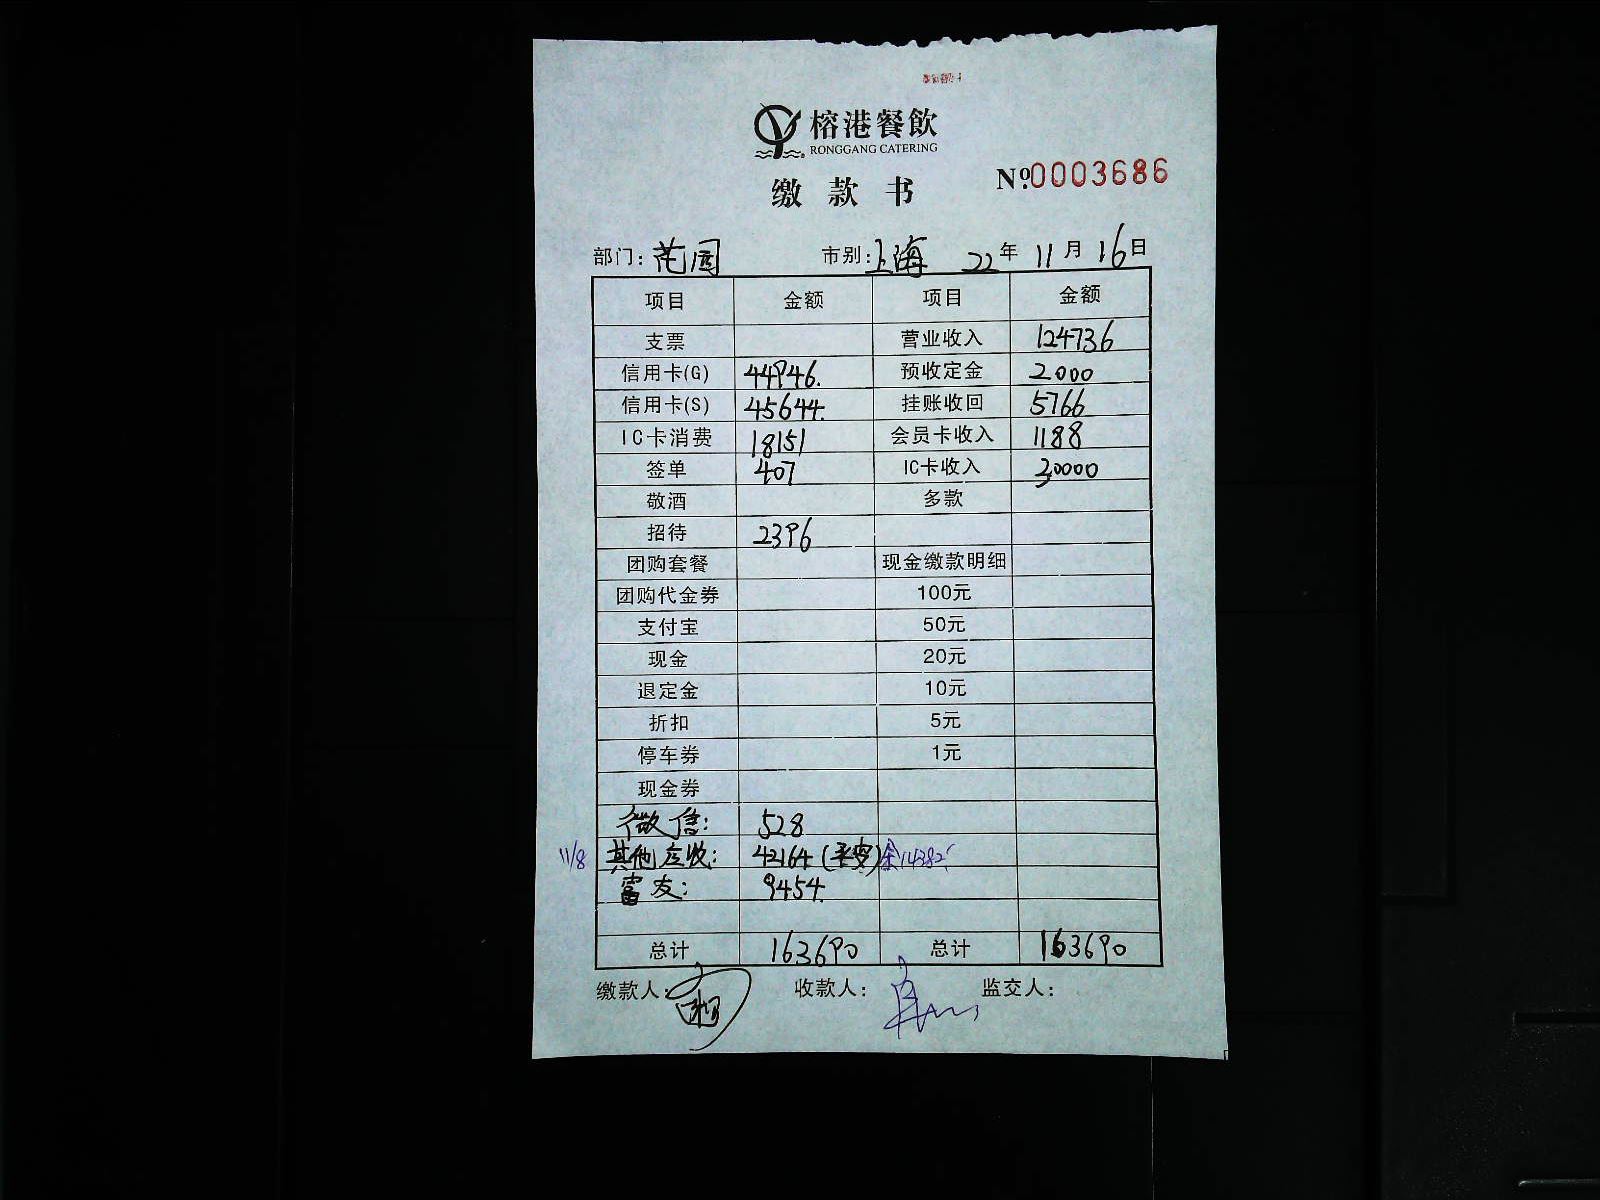 榕港餐飲
RONGGANG CATERING
缴款书
№0003686
部门: 花园 市别: 上海 22年 11月 16日
项目 金额 项目 金额
支票 营业收入 124736
信用卡(G) 44946. 预收定金 2000
信用卡(S) 45644. 挂账收回 5766
IC卡消费 18151 会员卡收入 1188
签单 407 IC卡收入 30000
敬酒 多款
招待 2396
团购套餐 现金缴款明细
团购代金券 100元
支付宝 50元
现金 20元
退定金 10元
折扣 5元
停车券 1元
现金券
微信: 528
11/8 其他应收: 42164 (平安) 余
富友: 9454.
总计 163690 总计 163690
缴款人: 收款人: 监交人: